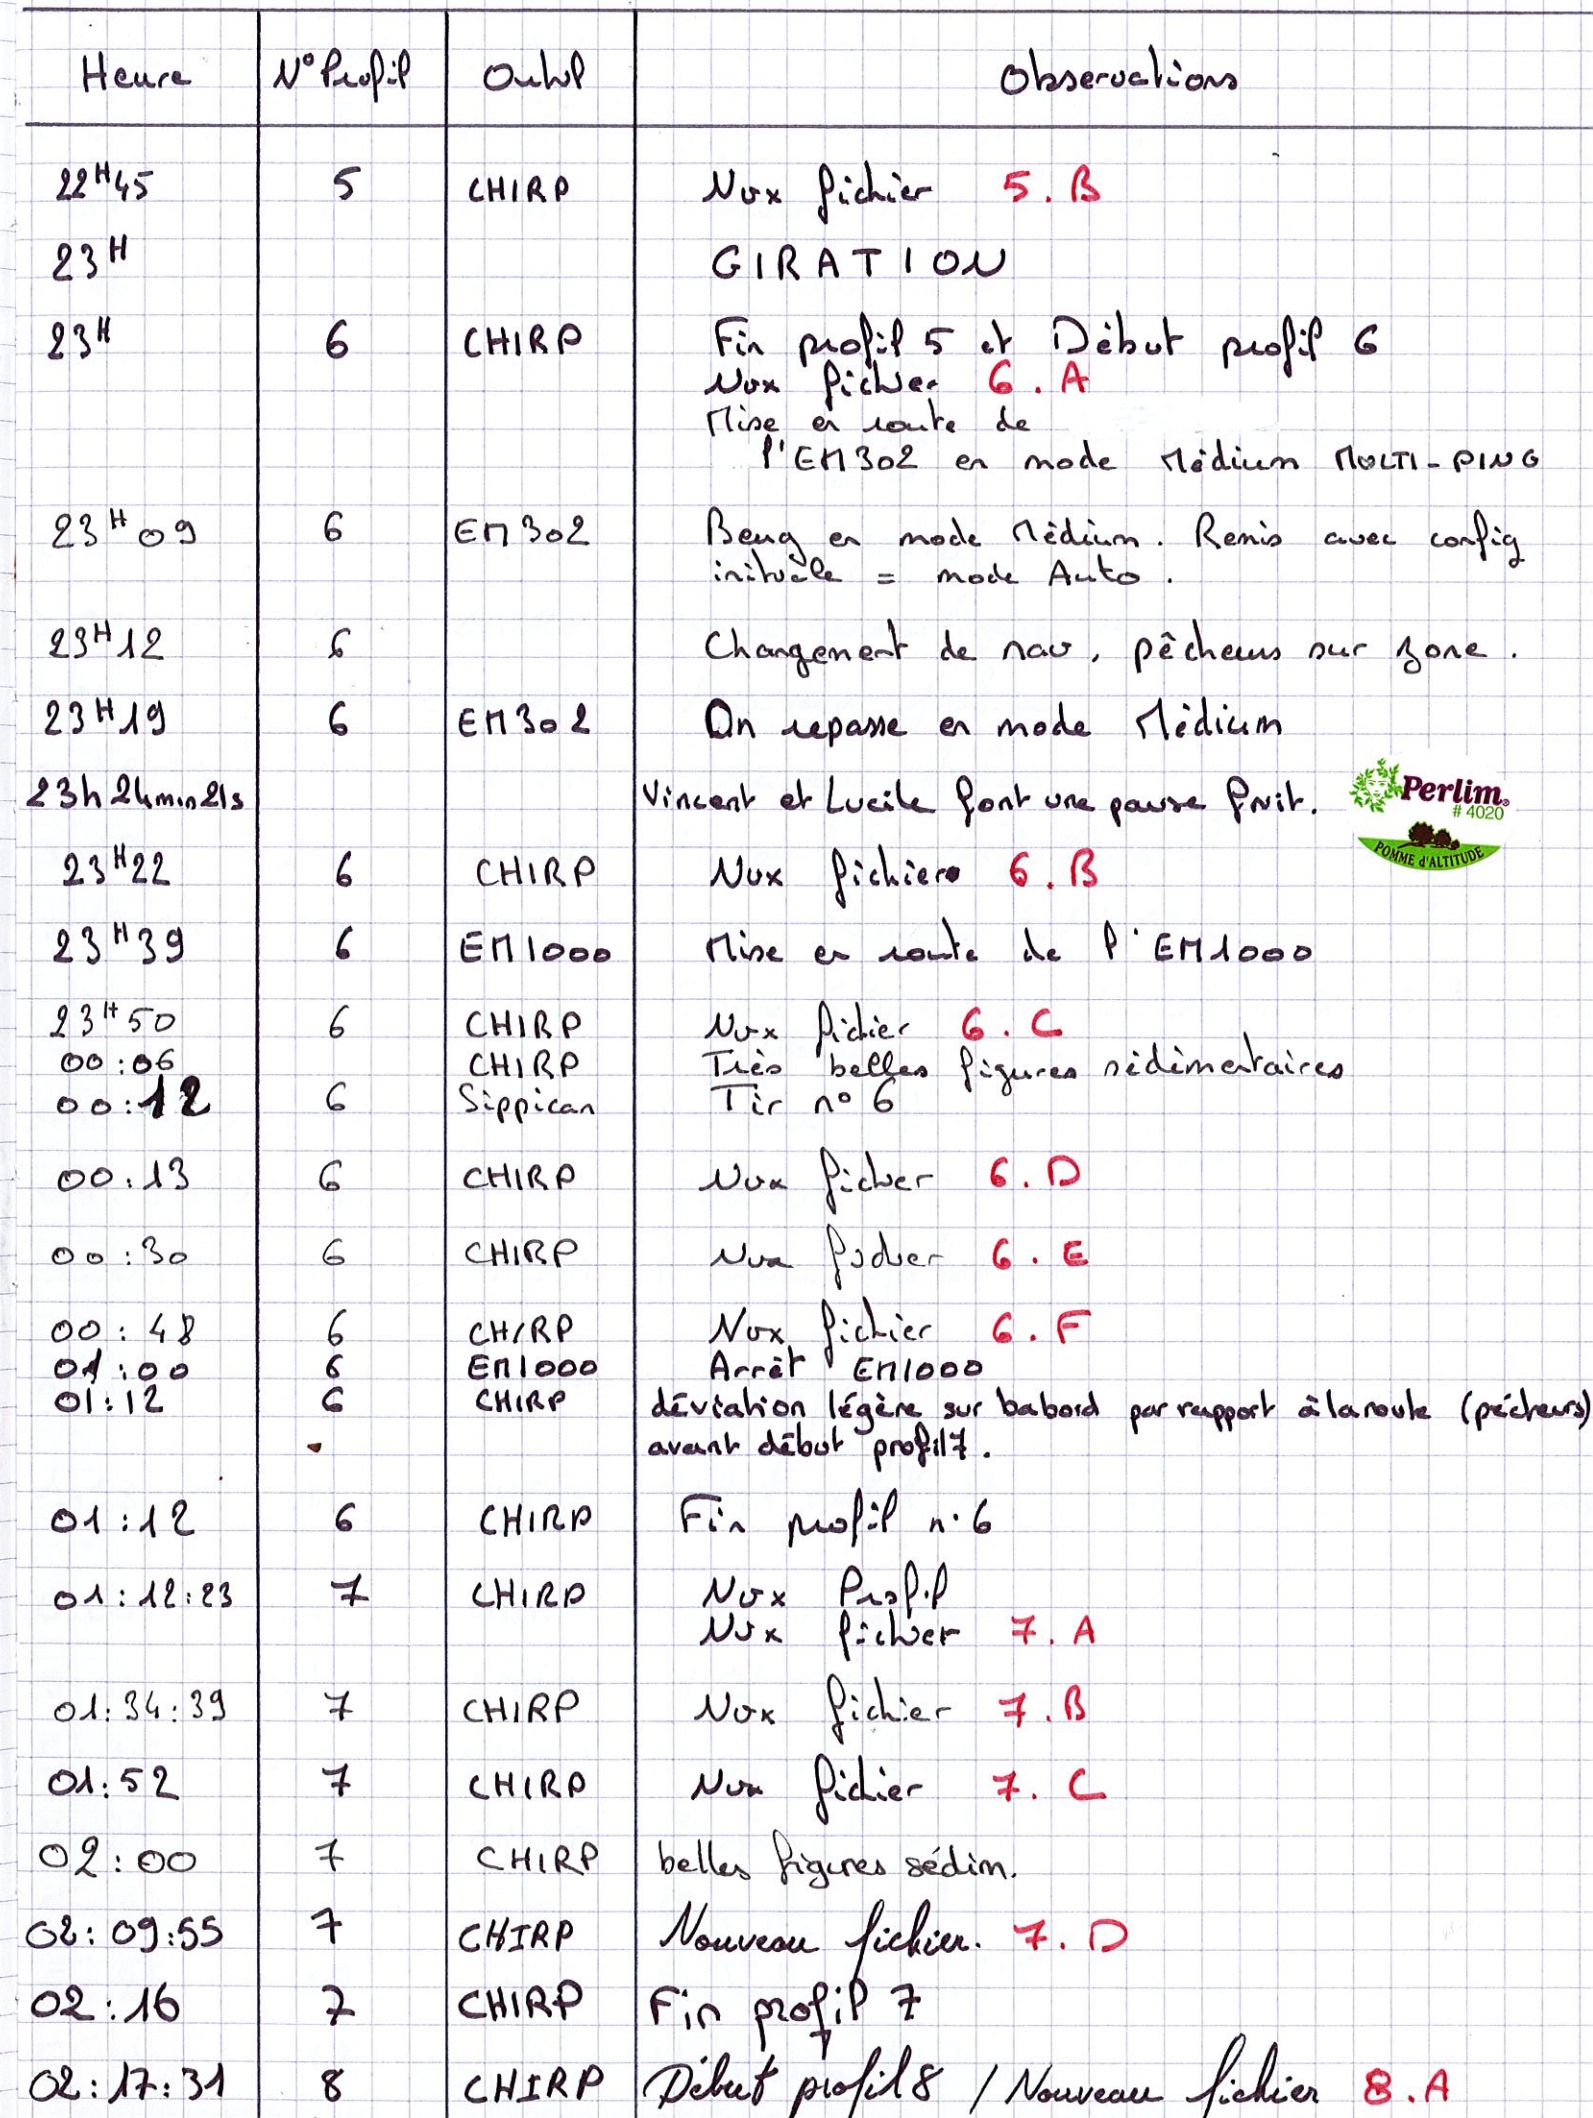 Heure N° Profil Outil Observations
22H45 5 CHIRP Nvx fichier 5.B
23H GIRATION
23H 6 CHIRP Fin profil 5 et Début profil 6
Nvx fichier 6.A
Mise en route de
l'EM302 en mode Médium MULTI-PING
23H09 6 EM302 Beug en mode Médium. Remis avec config
initiale = mode Auto.
23H12 6 Changement de nav, pêcheurs sur zone.
23H19 6 EM302 On repasse en mode Médium
23h24min21s Vincent et Lucile font une pause fruit.
Perlim
#4020
POMME d'ALTITUDE
23H22 6 CHIRP Nvx fichier 6.B
23H39 6 EM1000 Mise en route de l'EM1000
23H50 6 CHIRP Nvx fichier 6.C
00:06 CHIRP Très belles figures sédimentaires
00:12 6 Sippican Tir n° 6
00:13 6 CHIRP Nvx fichier 6.D
00:30 6 CHIRP Nvx fichier 6.E
00:48 6 CHIRP Nvx fichier 6.F
01:00 6 EM1000 Arrêt EM1000
01:12 6 CHIRP déviation légère sur babord par rapport à la route (pécheurs)
avant début profil 7.
01:12 6 CHIRP Fin profil n°6
01:12:23 7 CHIRP Nvx Profil
Nvx fichier 7.A
01:34:39 7 CHIRP Nvx fichier 7.B
01:52 7 CHIRP Nvx fichier 7.C
02:00 7 CHIRP belles figures sédim.
02:09:55 7 CHIRP Nouveau fichier. 7.D
02:16 7 CHIRP Fin profil 7
02:17:31 8 CHIRP Début profil 8 / Nouveau fichier 8.A